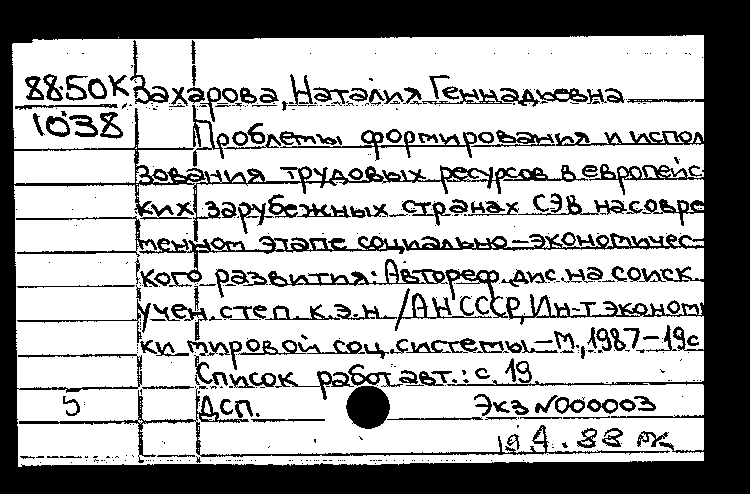 88.50К Захарова, Наталия Геннадьевна
1038
Проблемы формирования и исполь
зования трудовых ресурсов в европейс-
ких зарубежных странах СЭВ на совре
менном этапе социально-экономичес-
кого развития: Автореф. дис. на соиск.
учен. степ. к.э.н. /АН СССР, Ин-т эконом
ки мировой соц. системы.-М., 1987-19с
Список работ авт.: с. 19.
5 Дсп. Экз N000003
19 4.88